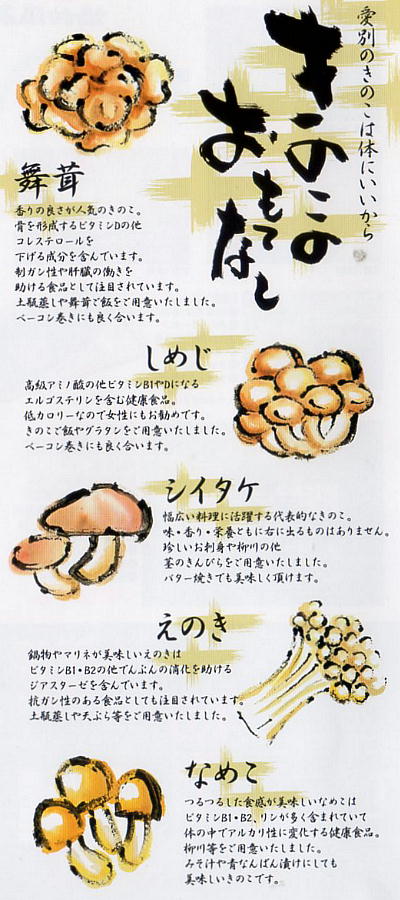 愛別のきのこは体にいいから
きのこの
おもてなし
舞茸
香りの良さが人気のきのこ。
骨を形成するビタミンDの他
コレステロールを
下げる成分を含んでいます。
制ガン性や肝臓の働きを
助ける食品として注目されています。
土瓶蒸しや舞茸ご飯をご用意いたしました。
ベーコン巻きにも良く合います。
しめじ
高級アミノ酸の他ビタミンB1やDになる
エルゴステリンを含む健康食品。
低カロリーなので女性にもお勧めです。
きのこご飯やグラタンをご用意いたしました。
ベーコン巻きにも良く合います。
シイタケ
幅広い料理に活躍する代表的なきのこ。
味・香り・栄養ともに右に出るものはありません。
珍しいお刺身や柳川の他
茎のきんぴらをご用意いたしました。
バター焼きでも美味しく頂けます。
えのき
鍋物やマリネが美味しいえのきは
ビタミンB1・B2の他でんぷんの消化を助ける
ジアスターゼを含んでいます。
抗ガン性のある食品としても注目されています。
土瓶蒸しや天ぷら等をご用意いたしました。
なめこ
つるつるした食感が美味しいなめこは
ビタミンB1・B2、リンが多く含まれていて
体の中でアルカリ性に変化する健康食品。
柳川等をご用意いたしました。
みそ汁や青なんばん漬けにしても
美味しいきのこです。